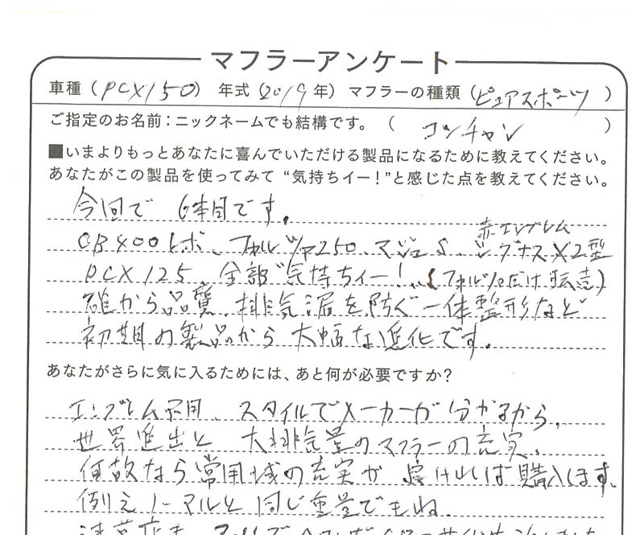 マフラーアンケート
車種（PCX150）年式（2019年）マフラーの種類（ピュアスポーツ）
ご指定のお名前：ニックネームでも結構です。（コンチャン）
■いまよりもっとあなたに喜んでいただける製品になるために教えてください。
あなたがこの製品を使ってみて“気持ちイー！”と感じた点を教えてください。
今回で 6本目です。
赤エンブレム
CB400レボ、フォルツァ250、マジェS、シグナスX2型
PCX125、全部“気持ちイー！（フォルツァだけ転売）
確かな品質、排気漏を防ぐ一体整形など
初期の製品から大幅な進化です。
あなたがさらに気に入るためには、あと何が必要ですか？
エンブレム不用、スタイルでメーカーが分かるから、
世界進出と 大排気量のマフラーの充実、
何故なら常用域の充実が 図ければ購入します
例えノーマルと同じ重量でもね。